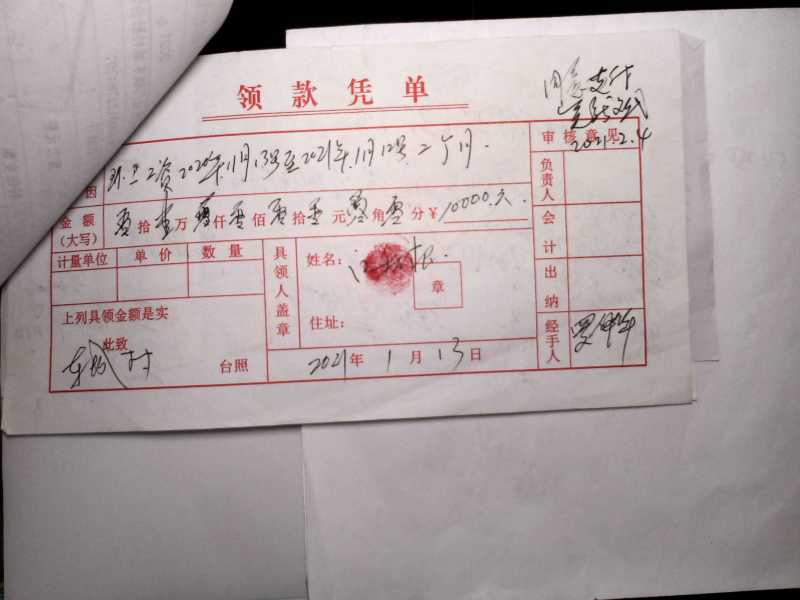 领款凭单
同意支付
2021.2.4
审核意见
因 环卫工资2020年11月13号至2021年1月12号.二个月.
金额(大写) 零拾壹万零仟零佰零拾零元零角零分¥10000.元.
计量单位 单价 数量
具领人盖章
姓名：
章
住址：
上列具领金额是实
此致
村 台照
2021年1月13日
负责人
会计
出纳
经手人